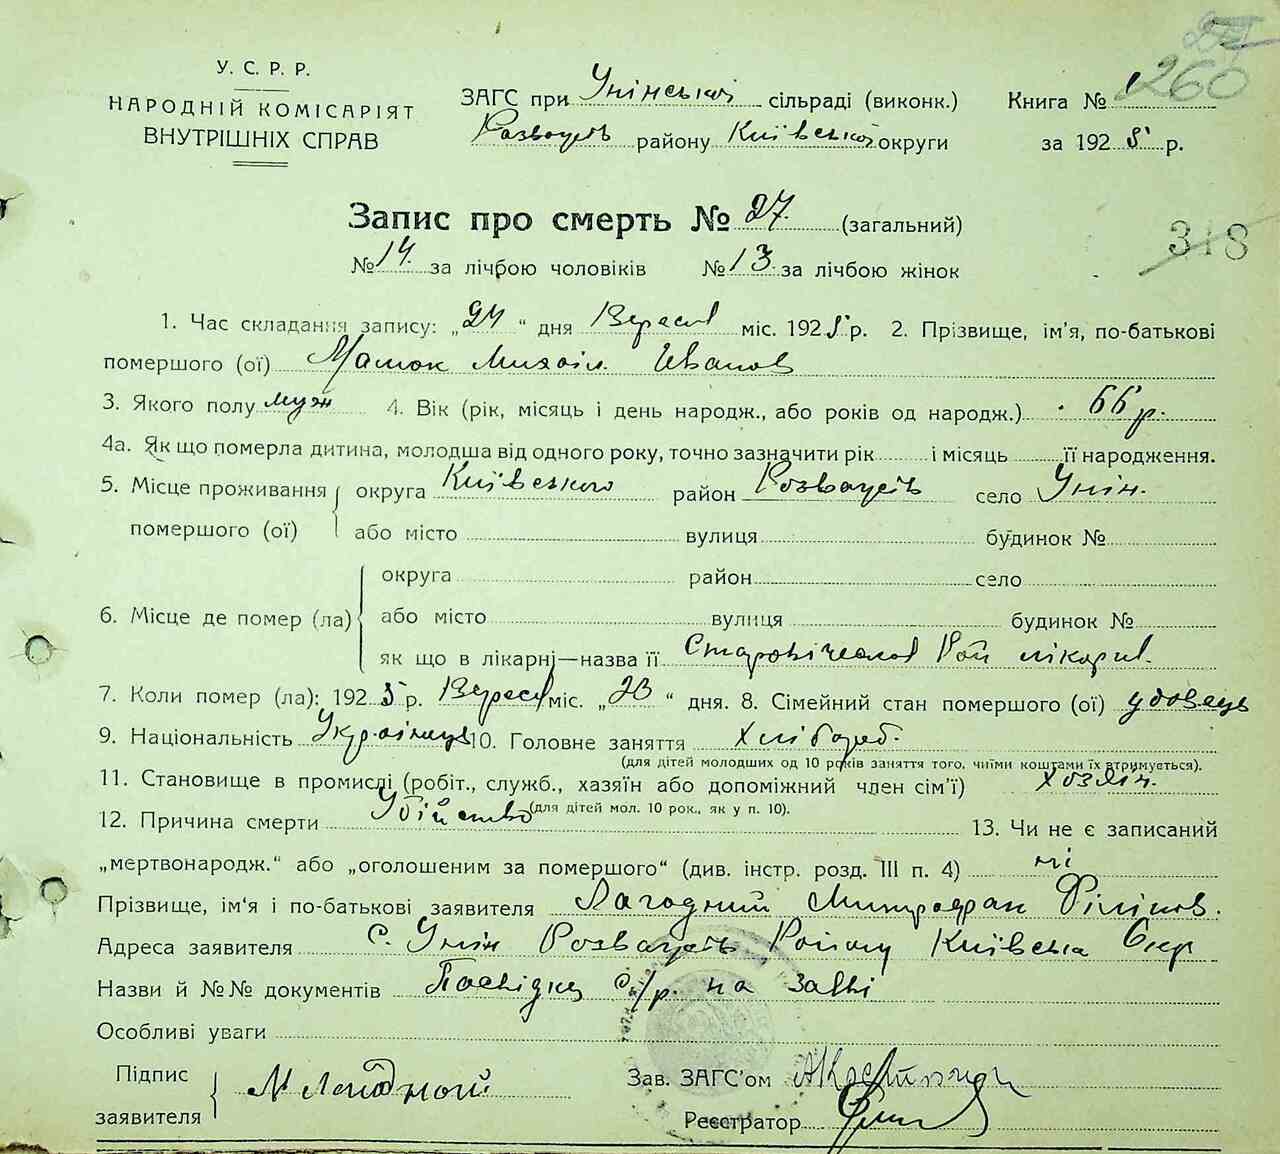 У. С. Р. Р.
НАРОДНІЙ КОМІСАРІЯТ
ВНУТРІШНІХ СПРАВ
ЗАГС при Унінській сільраді (виконк.)
Розважів району Київської округи
Книга № 1
260
за 1925 р.
Запис про смерть № 27. (загальний)
318
№ 14. за лічбою чоловіків № 13. за лічбою жінок
1. Час складання запису: „24“ дня Вересня міс. 1925 р. 2. Прізвище, ім'я, по-батькові
помершого (ої) Мамок Михайл. Іванов
3. Якого полу муж 4. Вік (рік, місяць і день народж., або років од народж.) 66 р.
4а. Як що померла дитина, молодша від одного року, точно зазначити рік і місяць її народження.
5. Місце проживання округа Київського район Розважів село Унін.
помершого (ої) або місто вулиця будинок №
округа район село
6. Місце де помер (ла) або місто вулиця будинок №
як що в лікарні—назва її Рай лікарн.
7. Коли помер (ла): 1925 р. Вересня міс. „23“ дня. 8. Сімейний стан помершого (ої) удовець
9. Національність Українець 10. Головне заняття Хлібороб.
(для дітей молодших од 10 років заняття того, чиїми коштами їх втримується).
11. Становище в промислі (робіт., служб., хазяїн або допоміжний член сім'ї) хозяїн.
(для дітей мол. 10 рок., як у п. 10).
12. Причина смерти Убійство 13. Чи не є записаний
„мертвонародж.“ або „оголошеним за помершого“ (див. інстр. розд. III п. 4) ні
Прізвище, ім'я і по-батькові заявителя Лагодний Митрофан Філіпов.
Адреса заявителя с. Унін Розважів Району Київська Окр
Назви й №№ документів Посвідку с/р. на
Особливі уваги
Підпис
заявителя
Зав. ЗАГС'ом
Реєстратор